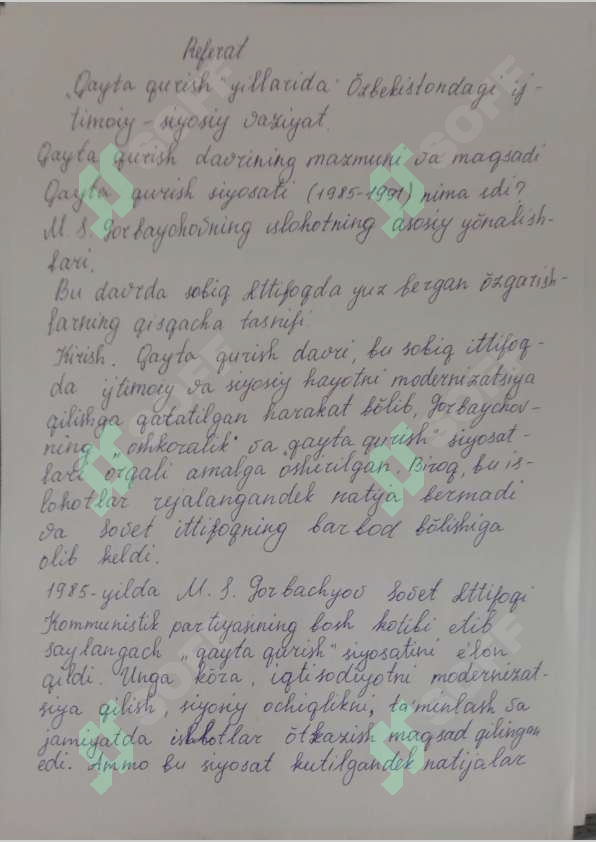 Referat
„Qayta qurish" yillarida Õzbekistondagi ij-
timoiy - siyosiy vaziyat.
Qayta qurish davrining mazmuni va maqsadi
Qayta qurish siyosati (1985-1991) nima edi?
M. S. Gorbaychovning islohotning asosiy yõnalish-
lari.
Bu davrda sobiq Ittifoqda yuz bergan õzgarish-
larning qisqacha tasnifi.
Kirish. Qayta qurish davri, bu sobiq ittifoq-
da ijtimoiy va siyosiy hayotni modernizatsiya
qilishga qaratilgan harakat bõlib, Gorbaychov-
ning „oshkoralik" va „qayta qurish" siyosat-
lari orqali amalga oshirilgan. Biroq, bu is-
lohotlar rejalangandek natija bermadi
va Sovet ittifoqning barbod bõlishiga
olib keldi.
1985-yilda M. S. Gorbachyov Sovet Ittifoqi
Kommunistik partiyasining bosh kotibi etib
saylangach „qayta qurish" siyosatini e'lon
qildi. Unga kõra, iqtisodiyotni modernizat-
siya qilish, siyosiy ochiqlikni, ta'minlash va
jamiyatda islohotlar õtkazish maqsad qilingan
edi. Ammo bu siyosat kutilgandek natijalar
SOFF